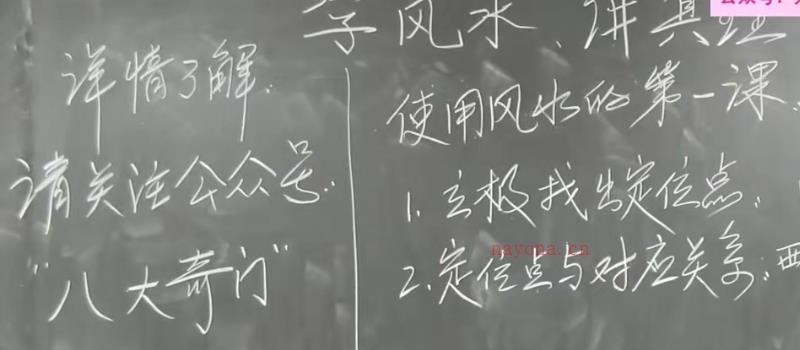 学风水、讲真理
详情了解.
请关注公众号.
"八大奇门"
使用风水的第一课.
1. 立极找出定位点.
2. 定位点与对应关系:西
nayona.cn